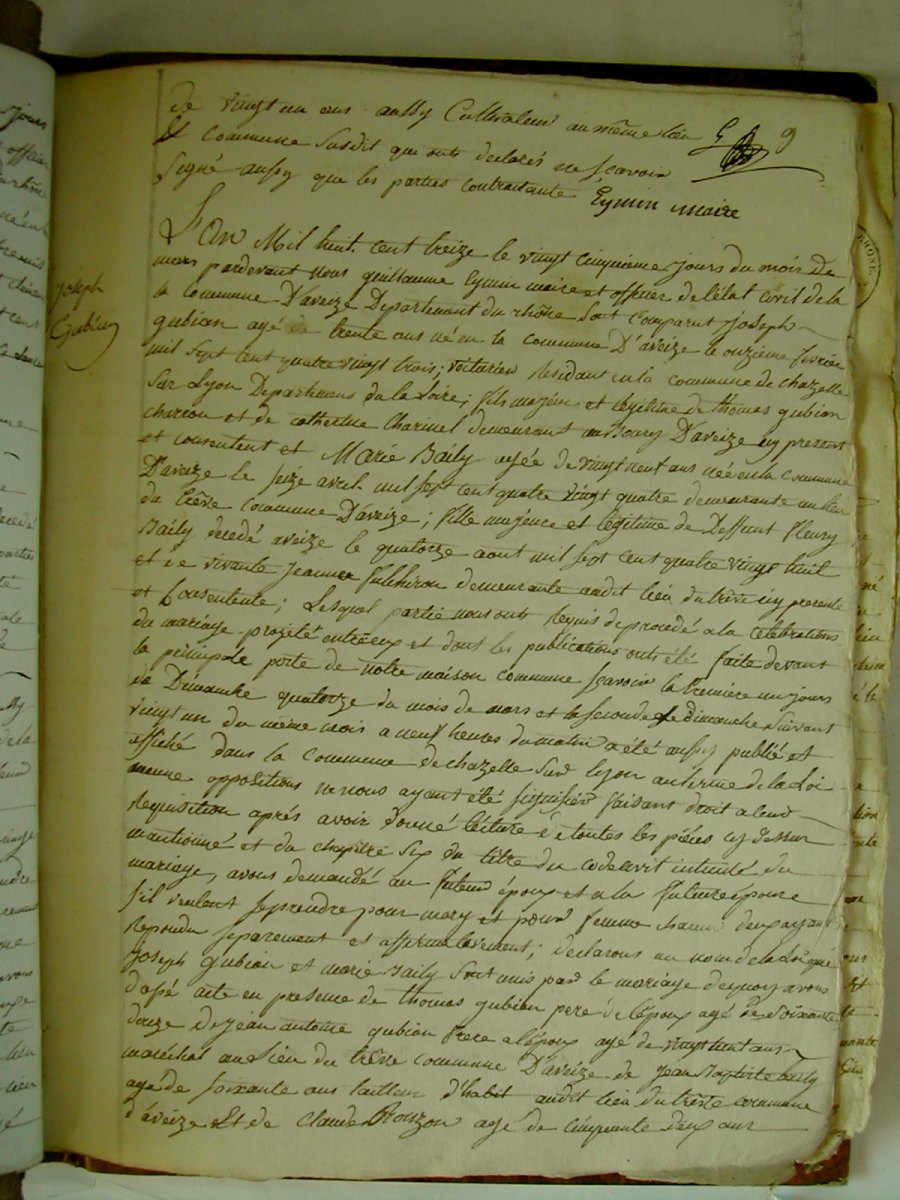 de vingt un ans aussy Cultivateur au même lieu G 9
et commune susdit qui onts declarés ne sçavoir
signé aussy que les parties contraitante Eymin maire
L'an Mil huit cent treize le vingt cinquieme jours du mois de
mars pardevant nous guillaume Eymin maire et officier de l'état civil de la
la commune D'aveize Departement du rhône sont comparut Joseph
Joseph
Gubian
gubian agé de trente ans né en la commune D'aveize le onzième fevrier
mil sept cent quatre vingt trois; voiturier Residant en la commune de chazelle
sur Lyon Departement de la Loire; fils majeur et legitime de thomas gubian
charron et de catherine Charinel demeurant au Bourg D'aveize icy present
et consentent et Marie Baily agée de vingt neuf ans née en la commune
D'aveize le seize avril mil sept cent quatre vingt quatre demeurante au lieu
du trêve commune D'aveize; fille majeure et légitime de Deffunt fleury
Baily decedé aveize le quatorze aout mil sept cent quatre vingt huit
et de vivante jeanne fulchiron demeurante audit lieu du trêve icy presente
et Consentente; Lesquel partie nous onts Requis de procedé a la celebrations
du mariage projeté entr'eux et dont les publications onts été faite devant
la principale porte de notre maison commune sçavoir la premiere un jours
de Dimanche quatorze du mois de mars et la seconde le dimanche suivant
vingt un du même mois a neuf heures du matin a été aussy publié et
affiché dans la Commune de chazelle sur lyon au terme de la Loi
aucune oppositions ne nous ayant été signifier faisant droit a leur
Requisition après avoir donné lécture de toutes les piéces cy dessus
mantionné et du chapitre six du titre du code civil intitulé du
mariage, avons demandé au futeur époux et a la futeure épouse
s'il veulent se prendre pour mary et pour femme chacun deux ayant
repondu separement et affirmativement; declarons au nom de la Loi que
joseph gubian et marie Baily sont unis par le mariage de quoy avons
d'ssé acte en presence de thomas gubian peré de l'époux agé de soixante
douze de jean antoine gubian frere a l'époux agé de vingt huit ans
maréchal au lieu du trêve commune D'aveize de jean Baptiste baily
agé de soixante ans tailleur d'habit audit lieu du trêve commune
d'aveize Et de Claude Bouzon agé de cinquante deux ans